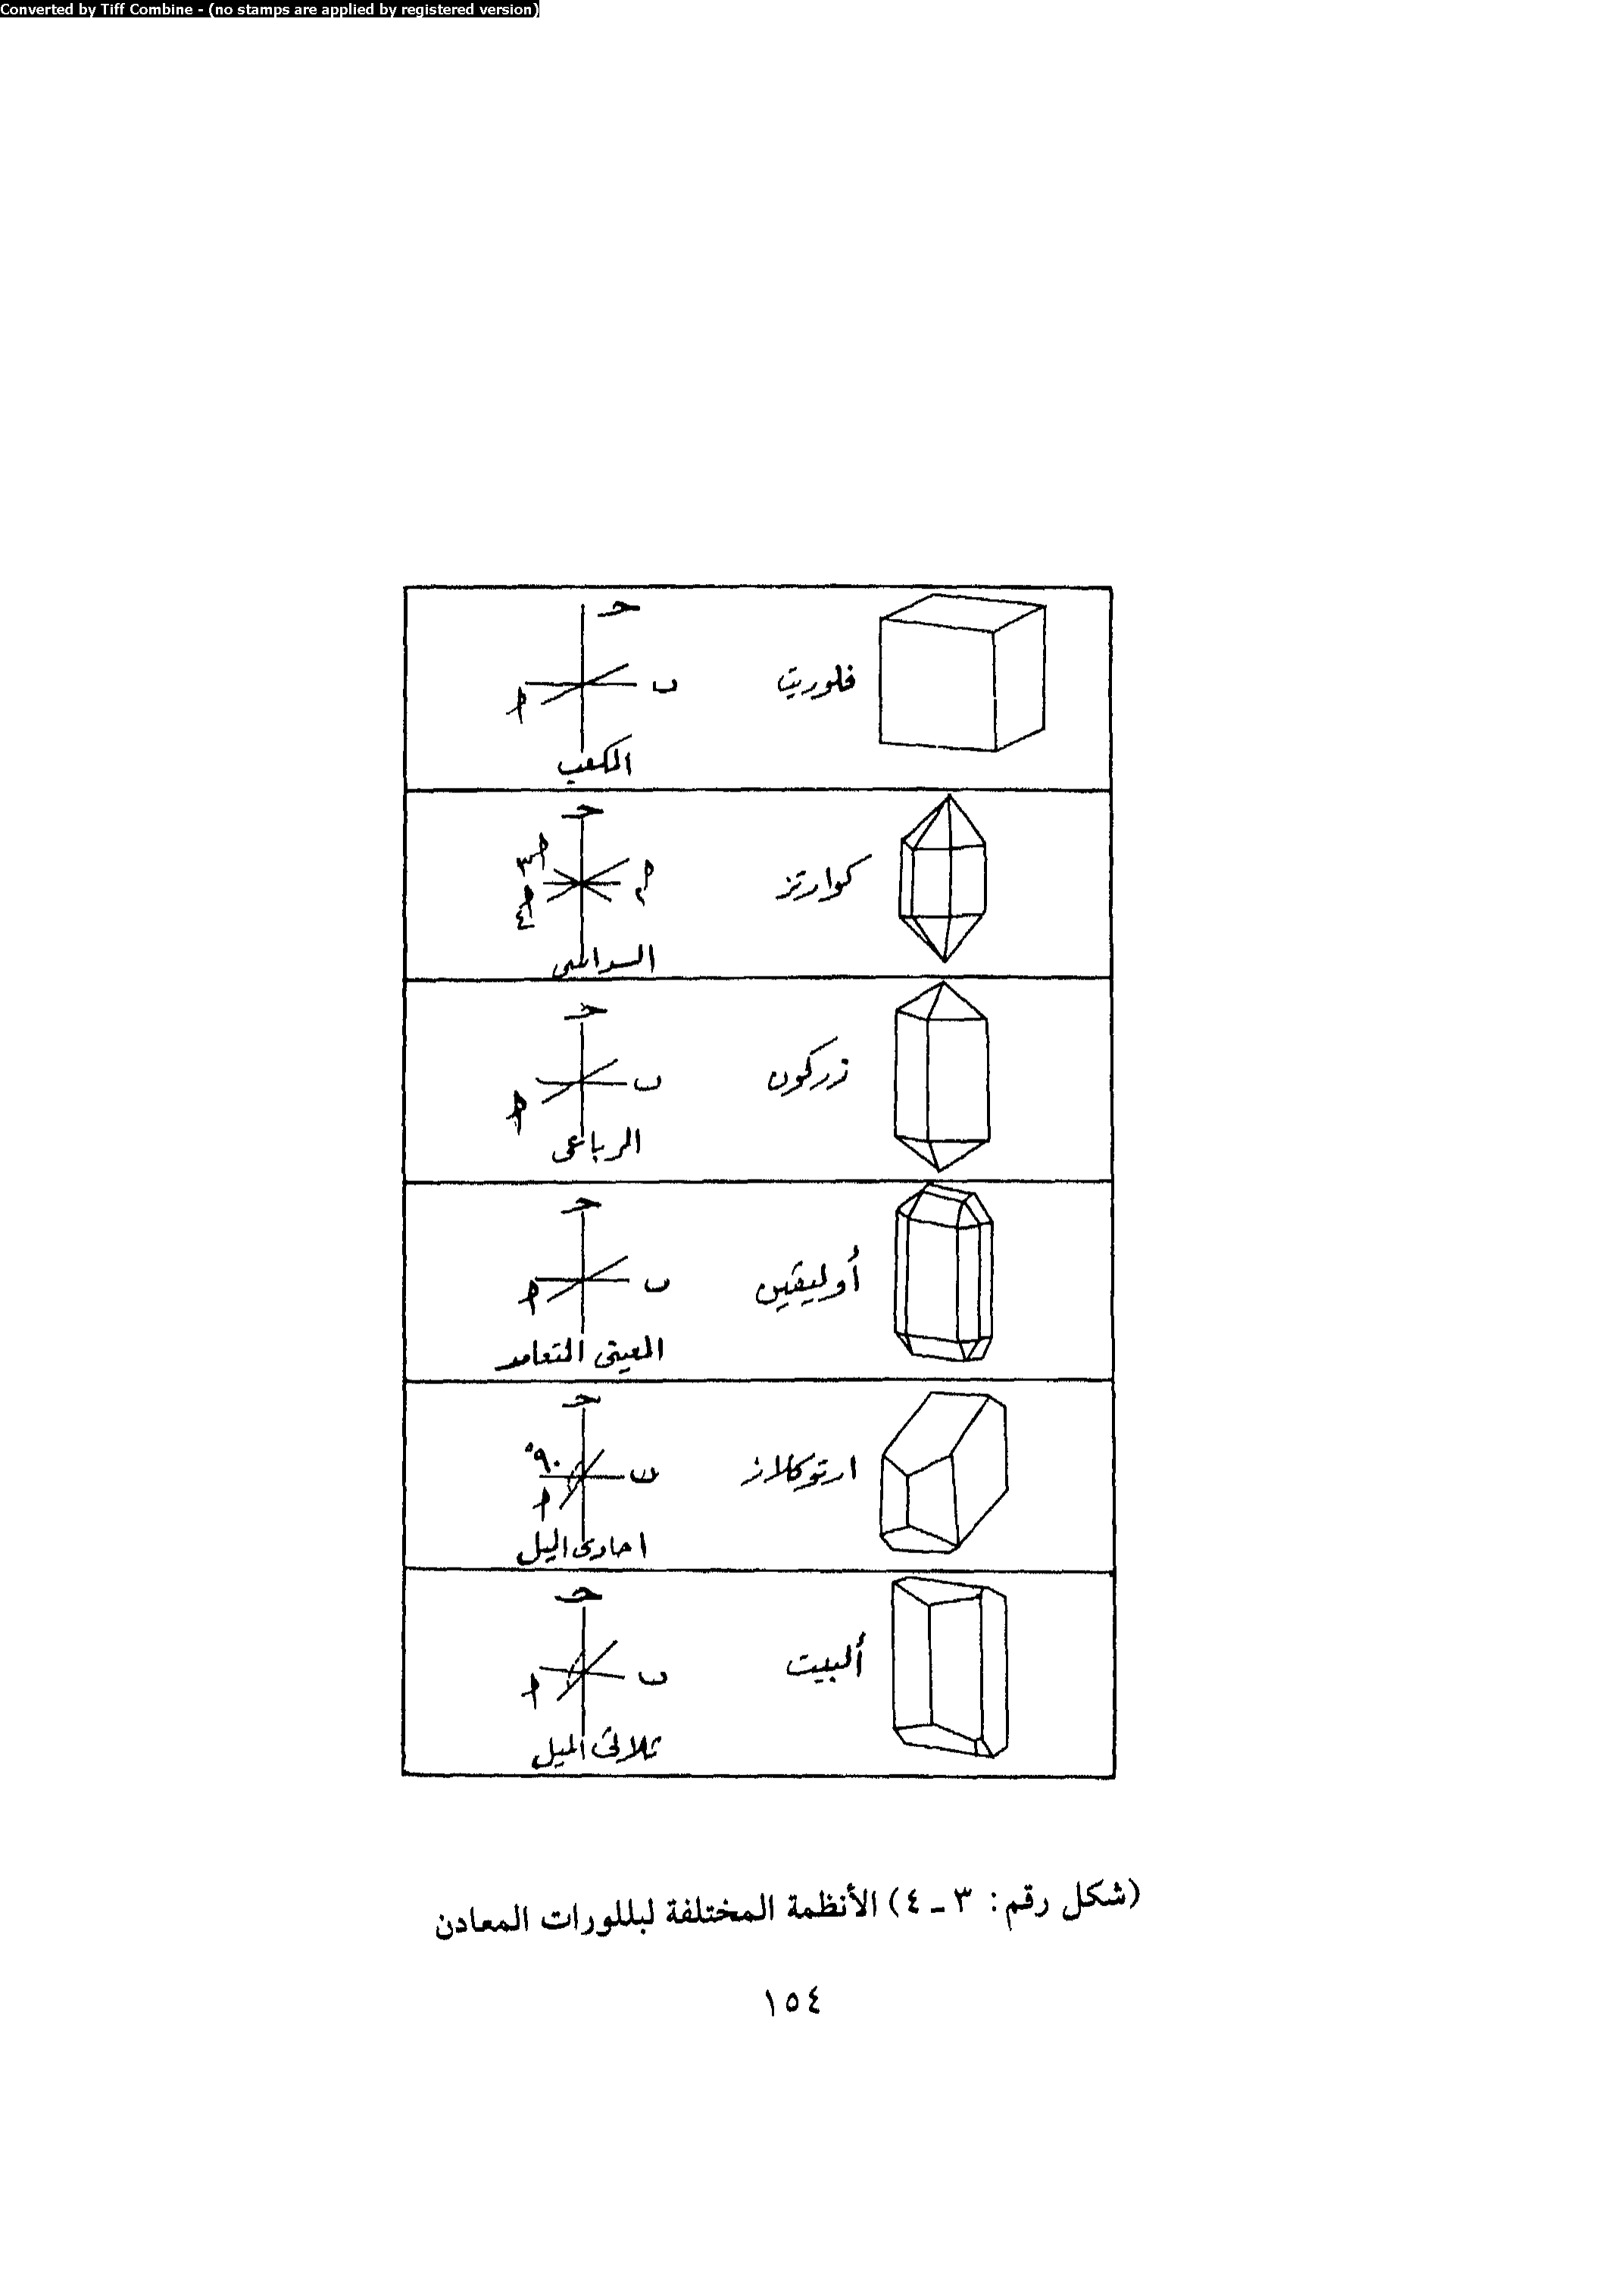 Converted by Tiff Combine - (no stamps are applied by registered version)
حـ
فلوريت
ب
أ
المكعب
حـ
كوارتز
السداسى
حـ
زركون
ب
أ
الرباعى
حـ
أوليڤين
ب
أ
المعينى المتعامد
حـ
٩٠°
ارتوكلاز
ب
أ
احادى الميل
حـ
ألبيت
ب
أ
ثلاثى الميل
(شكل رقم: ٣ ـ ٤) الأنظمة المختلفة لبللورات المعادن
١٥٤